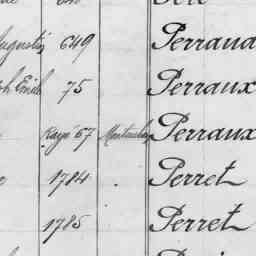 Augustin 649 Perraud
75 Perraux
Rayé 67 Montauban Perraux
1784 Perret
1785 Perret